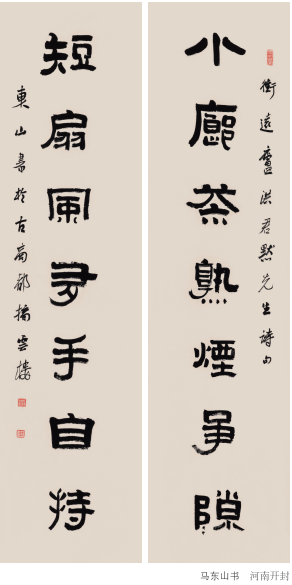 小廊茶熟煙爭隙
遠廬洪君默先生詩句
短扇風多手自持
東山書於古南都雲樓
马东山书 河南开封